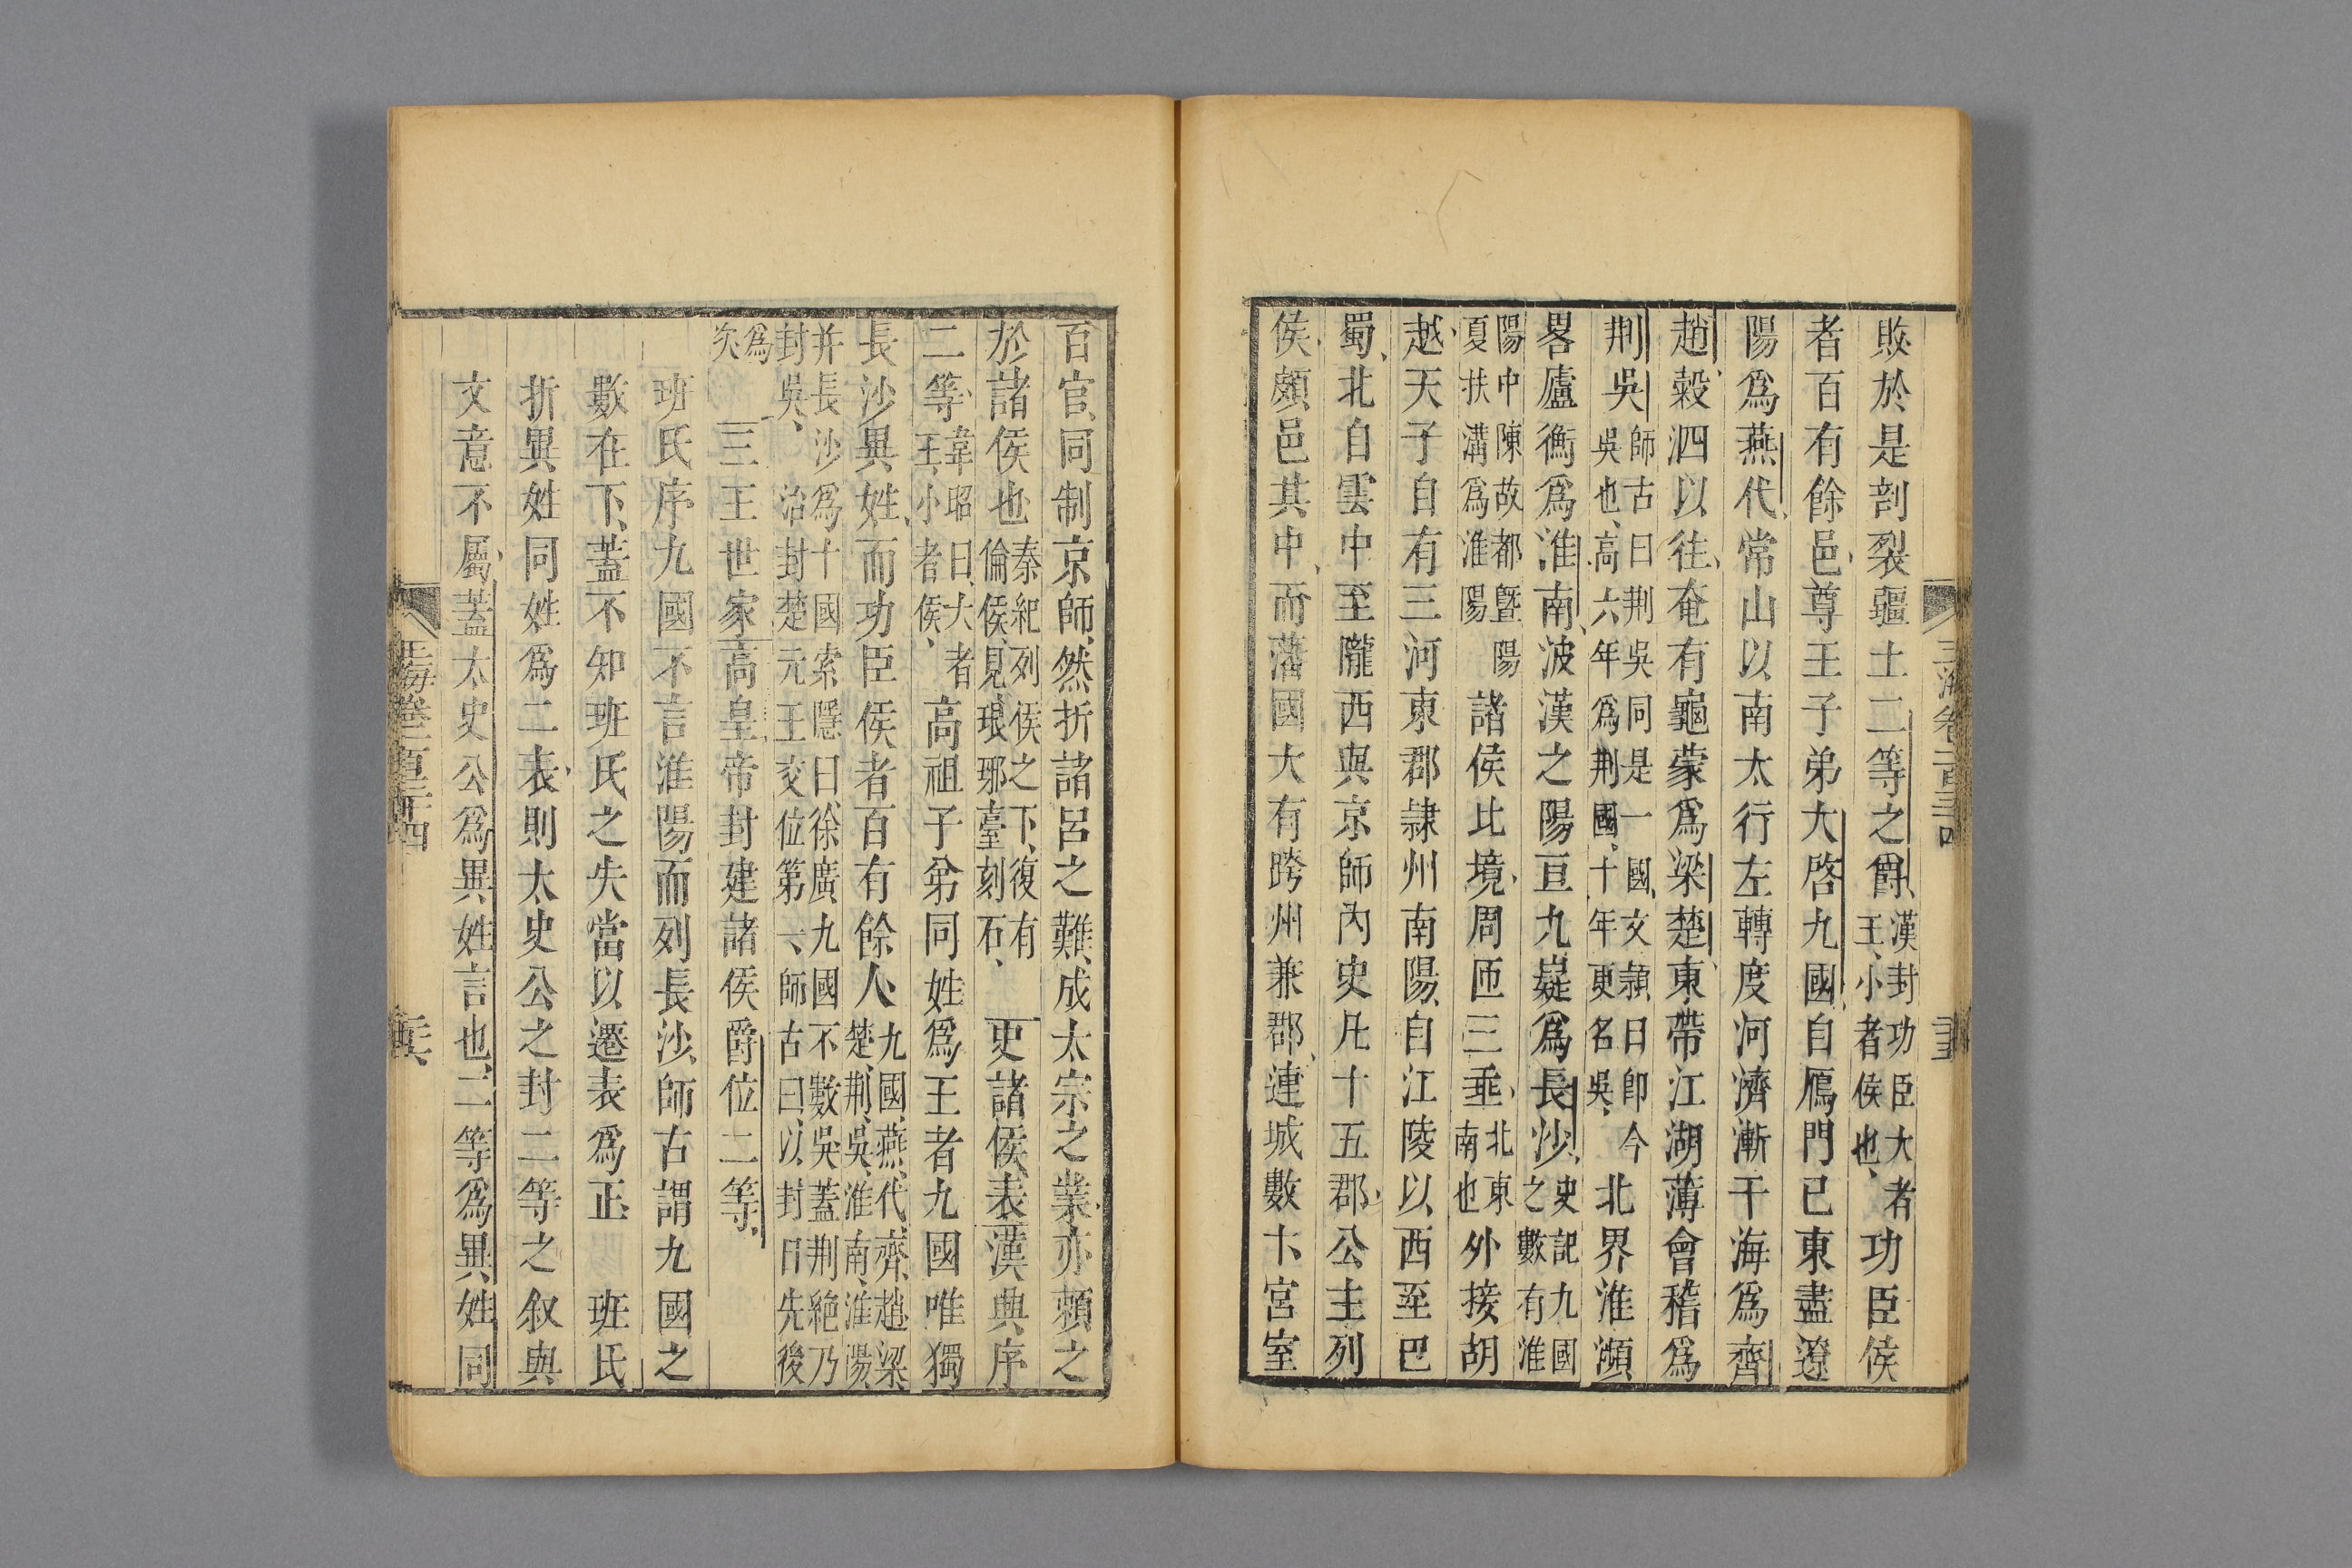 敗於是剖裂疆土二等之爵漢封功臣大者王小者侯也功臣侯
者百有餘邑尊王子弟大啓九國自鴈門已東盡遼
陽爲燕代常山以南太行左轉度河濟漸于海爲齊
趙穀泗以往奄有龜蒙爲梁楚東帶江湖薄會稽爲
荆吳師古曰荆吳同是一國文穎曰卽今吳也高六年爲荆國十年更名吳北界淮瀕
畧廬衡爲淮南波漢之陽亘九嶷爲長沙史記九國之數有淮
陽中陳故都曁陽夏扶溝爲淮陽諸侯比境周匝三垂北東南也外接胡
越天子自有三河東郡隷州南陽自江陵以西至巴
蜀北自雲中至隴西與京師內史凡十五郡公主列
侯頗邑其中而藩國大有跨州兼郡連城數十宮室
玉海卷一百三十四
百官同制京師然折諸呂之難成太宗之業亦賴之
於諸侯也秦紀列侯之下復有倫侯見琅邪臺刻石 吏諸侯表漢典序
二等韋昭曰大者王小者侯高祖子弟同姓爲王者九國唯獨
長沙異姓而功臣侯者百有餘人九國燕代齊趙梁楚荆吳淮南淮陽
并長沙爲十國索隱曰徐廣九國不數吳蓋荆絶乃封吳治封楚元王交位第一師古曰以封日先後
爲次 三王世家高皇帝封建諸侯爵位二等
班氏序九國不言淮陽而列長沙師古謂九國之
數在下蓋不知班氏之失當以遷表爲正 班氏
折異姓同姓爲二表則太史公之封二等之叙與
文意不屬蓋太史公爲異姓言也二等爲異姓同
玉海卷一百三十四